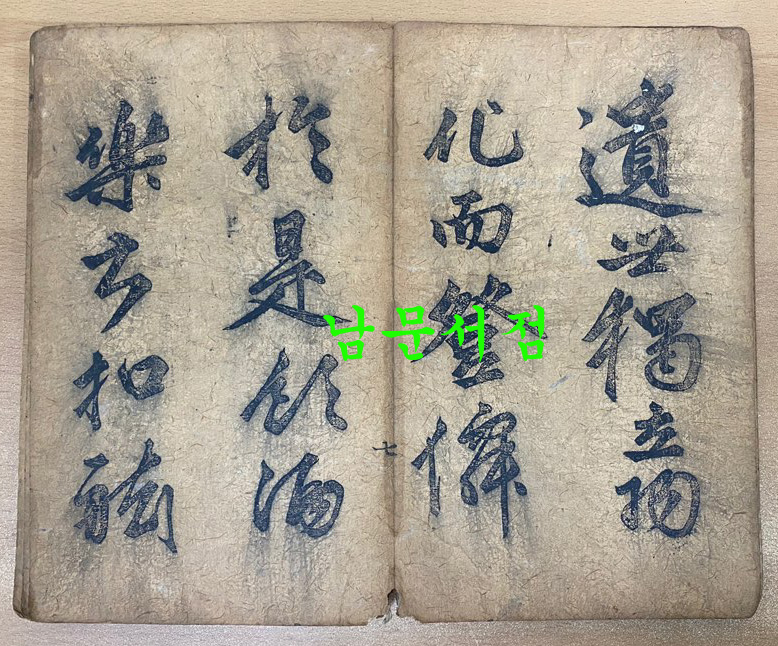 遺世獨立羽
化而登僊
於是飲酒
樂甚扣舷
七
남문서점